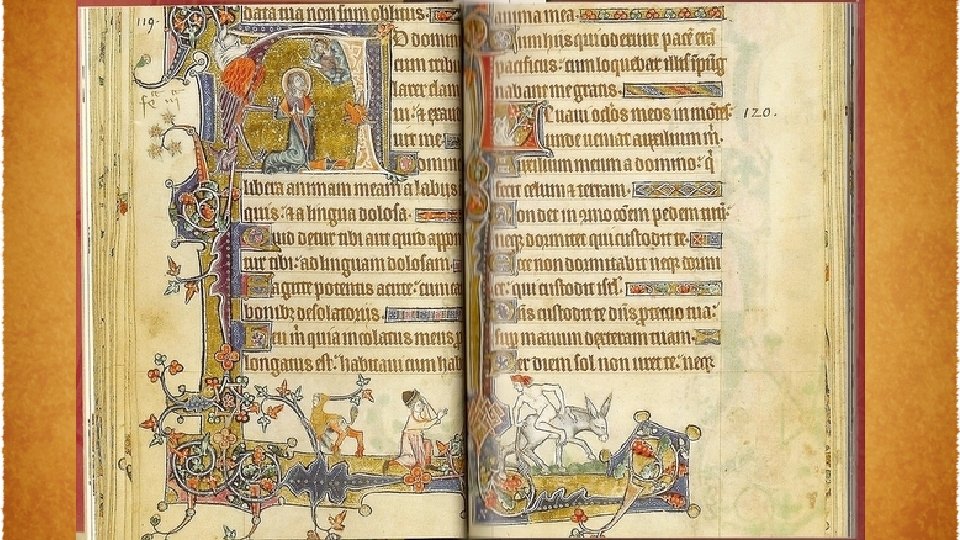 119.
data tua non sum oblitus.
D domin
cum tribu
larer clam
ui: ⁊ exau
uit me.
Domine
libera animam meam a labijs
quis: ⁊ a lingua dolosa.
Quid detur tibi aut quid appon
tur tibi: ad linguam dolosam.
Sagitte potentis acute: cum ca
bonibꝫ desolatoriis.
Heu m̄ quia incolatus meus p
longatus est: habitaui cum hab
anima mea.
Cum hijs qui oderunt pacē erā
pacificus: cum loquebar illis īpug
nabant me gratis.
Leuaui oc̄los meos in mōtes:
unde ueniat auxilium m̄.
Auxilium meum a domino: q̄
fecit celum ⁊ terram.
Non det in cōmocōem pedem tuū:
neqꝫ dormitet qui custodit te.
Ecce non dormitabit neqꝫ dormi
et: qui custodit isrl̄.
Dn̄s custodit te dn̄s ꝓtectio tua:
suꝑ manum dexteram tuam.
Per diem sol non uret te: neqꝫ
120.